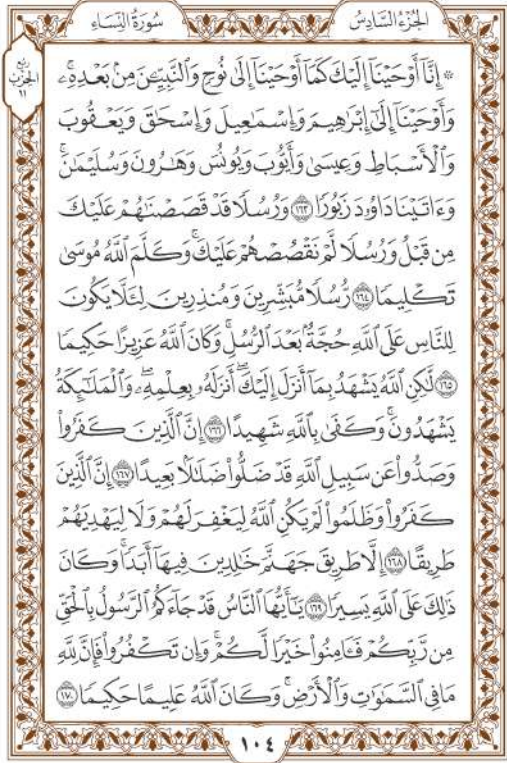 سُورَةُ النِّسَاءِ
الجُزْءُ السَّادِسُ
ربع
الحزب
١١
۞ إِنَّآ أَوْحَيْنَآ إِلَيْكَ كَمَآ أَوْحَيْنَآ إِلَىٰ نُوحٍ وَٱلنَّبِيِّـۧنَ مِنۢ بَعْدِهِۦۚ
وَأَوْحَيْنَآ إِلَىٰٓ إِبْرَٰهِيمَ وَإِسْمَٰعِيلَ وَإِسْحَٰقَ وَيَعْقُوبَ
وَٱلْأَسْبَاطِ وَعِيسَىٰ وَأَيُّوبَ وَيُونُسَ وَهَٰرُونَ وَسُلَيْمَٰنَۚ
وَءَاتَيْنَا دَاوُۥدَ زَبُورًا ١٦٣ وَرُسُلًا قَدْ قَصَصْنَٰهُمْ عَلَيْكَ
مِن قَبْلُ وَرُسُلًا لَّمْ نَقْصُصْهُمْ عَلَيْكَۚ وَكَلَّمَ ٱللَّهُ مُوسَىٰ
تَكْلِيمًا ١٦٤ رُّسُلًا مُّبَشِّرِينَ وَمُنذِرِينَ لِئَلَّا يَكُونَ
لِلنَّاسِ عَلَى ٱللَّهِ حُجَّةٌۢ بَعْدَ ٱلرُّسُلِۚ وَكَانَ ٱللَّهُ عَزِيزًا حَكِيمًا
١٦٥ لَّٰكِنِ ٱللَّهُ يَشْهَدُ بِمَآ أَنزَلَ إِلَيْكَۖ أَنزَلَهُۥ بِعِلْمِهِۦۖ وَٱلْمَلَٰٓئِكَةُ
يَشْهَدُونَۚ وَكَفَىٰ بِٱللَّهِ شَهِيدًا ١٦٦ إِنَّ ٱلَّذِينَ كَفَرُوا۟
وَصَدُّوا۟ عَن سَبِيلِ ٱللَّهِ قَدْ ضَلُّوا۟ ضَلَٰلًۢا بَعِيدًا ١٦٧ إِنَّ ٱلَّذِينَ
كَفَرُوا۟ وَظَلَمُوا۟ لَمْ يَكُنِ ٱللَّهُ لِيَغْفِرَ لَهُمْ وَلَا لِيَهْدِيَهُمْ
طَرِيقًا ١٦٨ إِلَّا طَرِيقَ جَهَنَّمَ خَٰلِدِينَ فِيهَآ أَبَدًاۚ وَكَانَ
ذَٰلِكَ عَلَى ٱللَّهِ يَسِيرًا ١٦٩ يَٰٓأَيُّهَا ٱلنَّاسُ قَدْ جَآءَكُمُ ٱلرَّسُولُ بِٱلْحَقِّ
مِن رَّبِّكُمْ فَـَٔامِنُوا۟ خَيْرًا لَّكُمْۚ وَإِن تَكْفُرُوا۟ فَإِنَّ لِلَّهِ
مَا فِى ٱلسَّمَٰوَٰتِ وَٱلْأَرْضِۚ وَكَانَ ٱللَّهُ عَلِيمًا حَكِيمًا ١٧٠
١٠٤